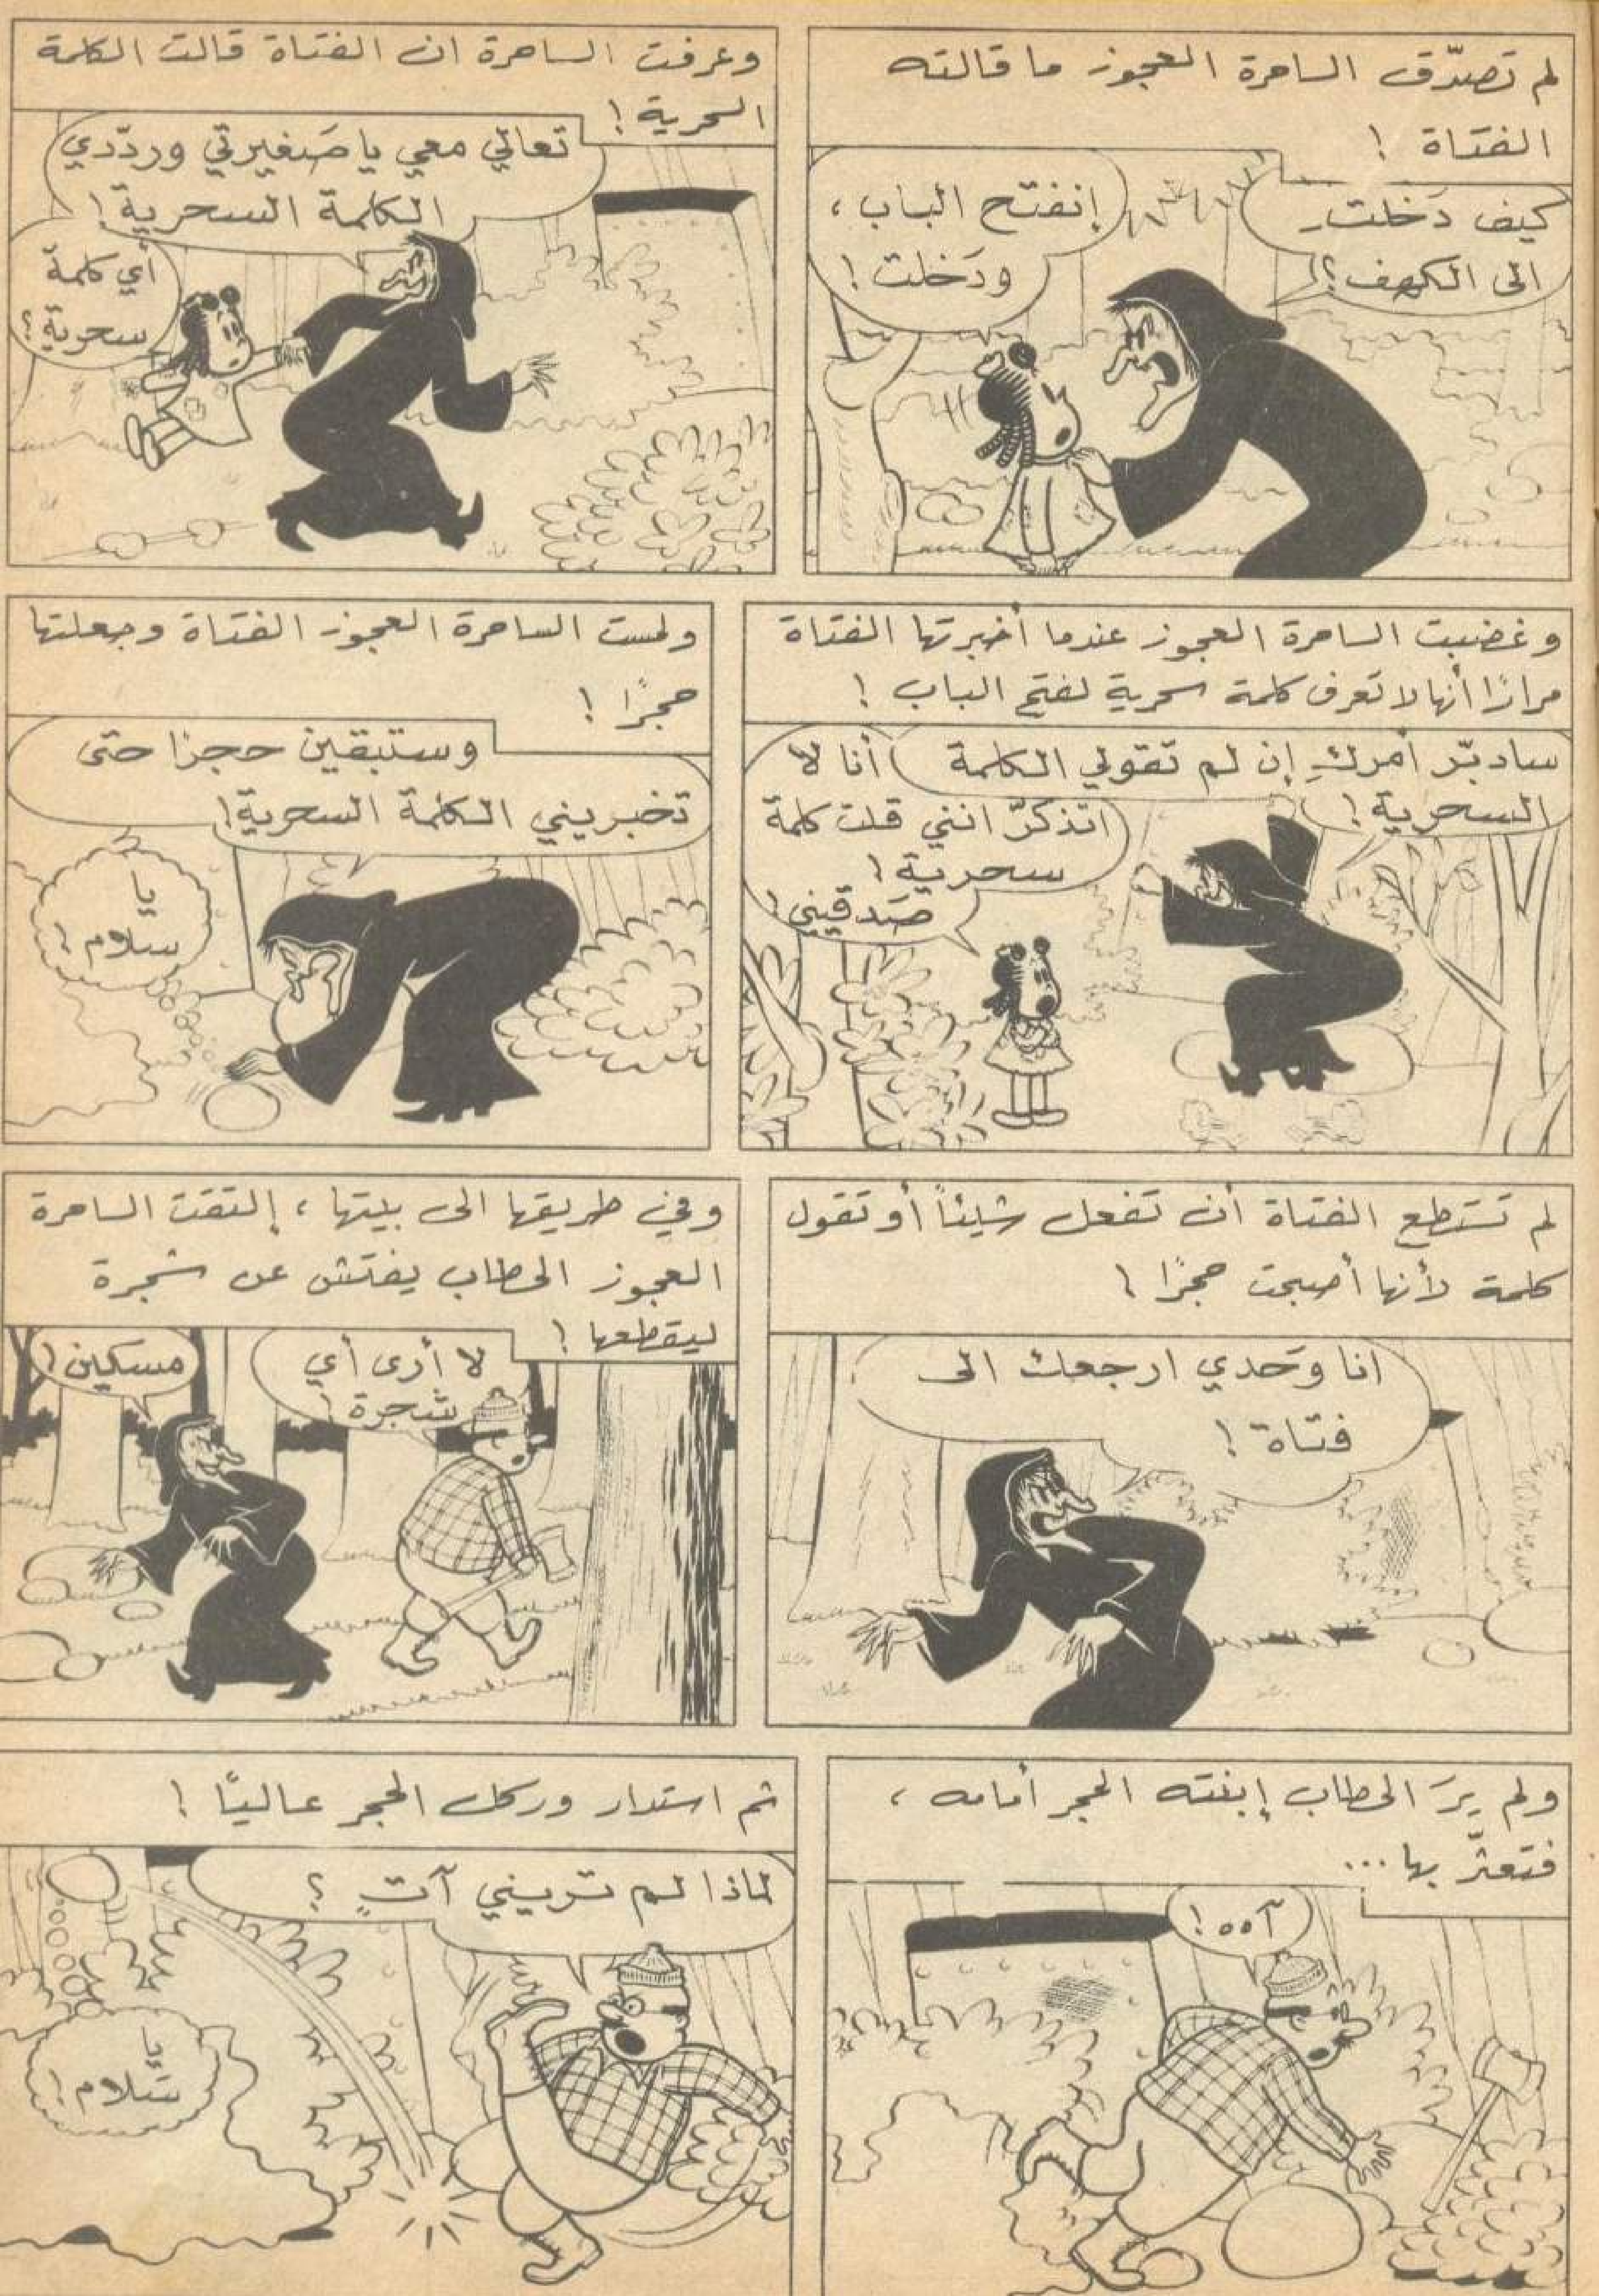 لم تصدّق الساحرة العجوز ما قالته
الفتاة !
كيف دَخلت
الى الكهف ؟!
إنفتح الباب ،
ودَخلت !
وعرفت الساحرة ان الفتاة قالت الكلمة
السحرية !
تعالي معي يا صَغيرتي وردّدي
الكلمة السحرية !
أي كلمة
سحرية ؟
وغضبت الساحرة العجوز عندما أخبرتها الفتاة
مرارًا أنها لا تعرف كلمة سحرية لفتح الباب !
سادبّر أمركِ إن لم تقولي الكلمة
السحرية !
أنا لا
اتذكرّ انني قلت كلمة
سحرية !
صَدقيني !
ولمست الساحرة العجوز الفتاة وجعلتها
حجرًا !
وستبقين حجرًا حتى
تخبريني الكلمة السحرية !
يا
سلام !
لم تستطع الفتاة أن تفعل شيئاً أو تقول
كلمة لأنها أصبحت حجرًا !
انا وَحدي ارجعك الى
فتاة !
وفي طريقها الى بيتها ، إلتقت الساحرة
العجوز الحطاب يفتش عن شجرة
ليقطعها !
لا أرى أي
شجرة !
مسكين !
ولم يرَ الحطاب إبنته الحجر أمامه ،
فتعثّر بها ...
آه ه !
ثم استدار وركل الحجر عاليًا !
لماذا لم تريني آتٍ ؟
يا
سَلام !